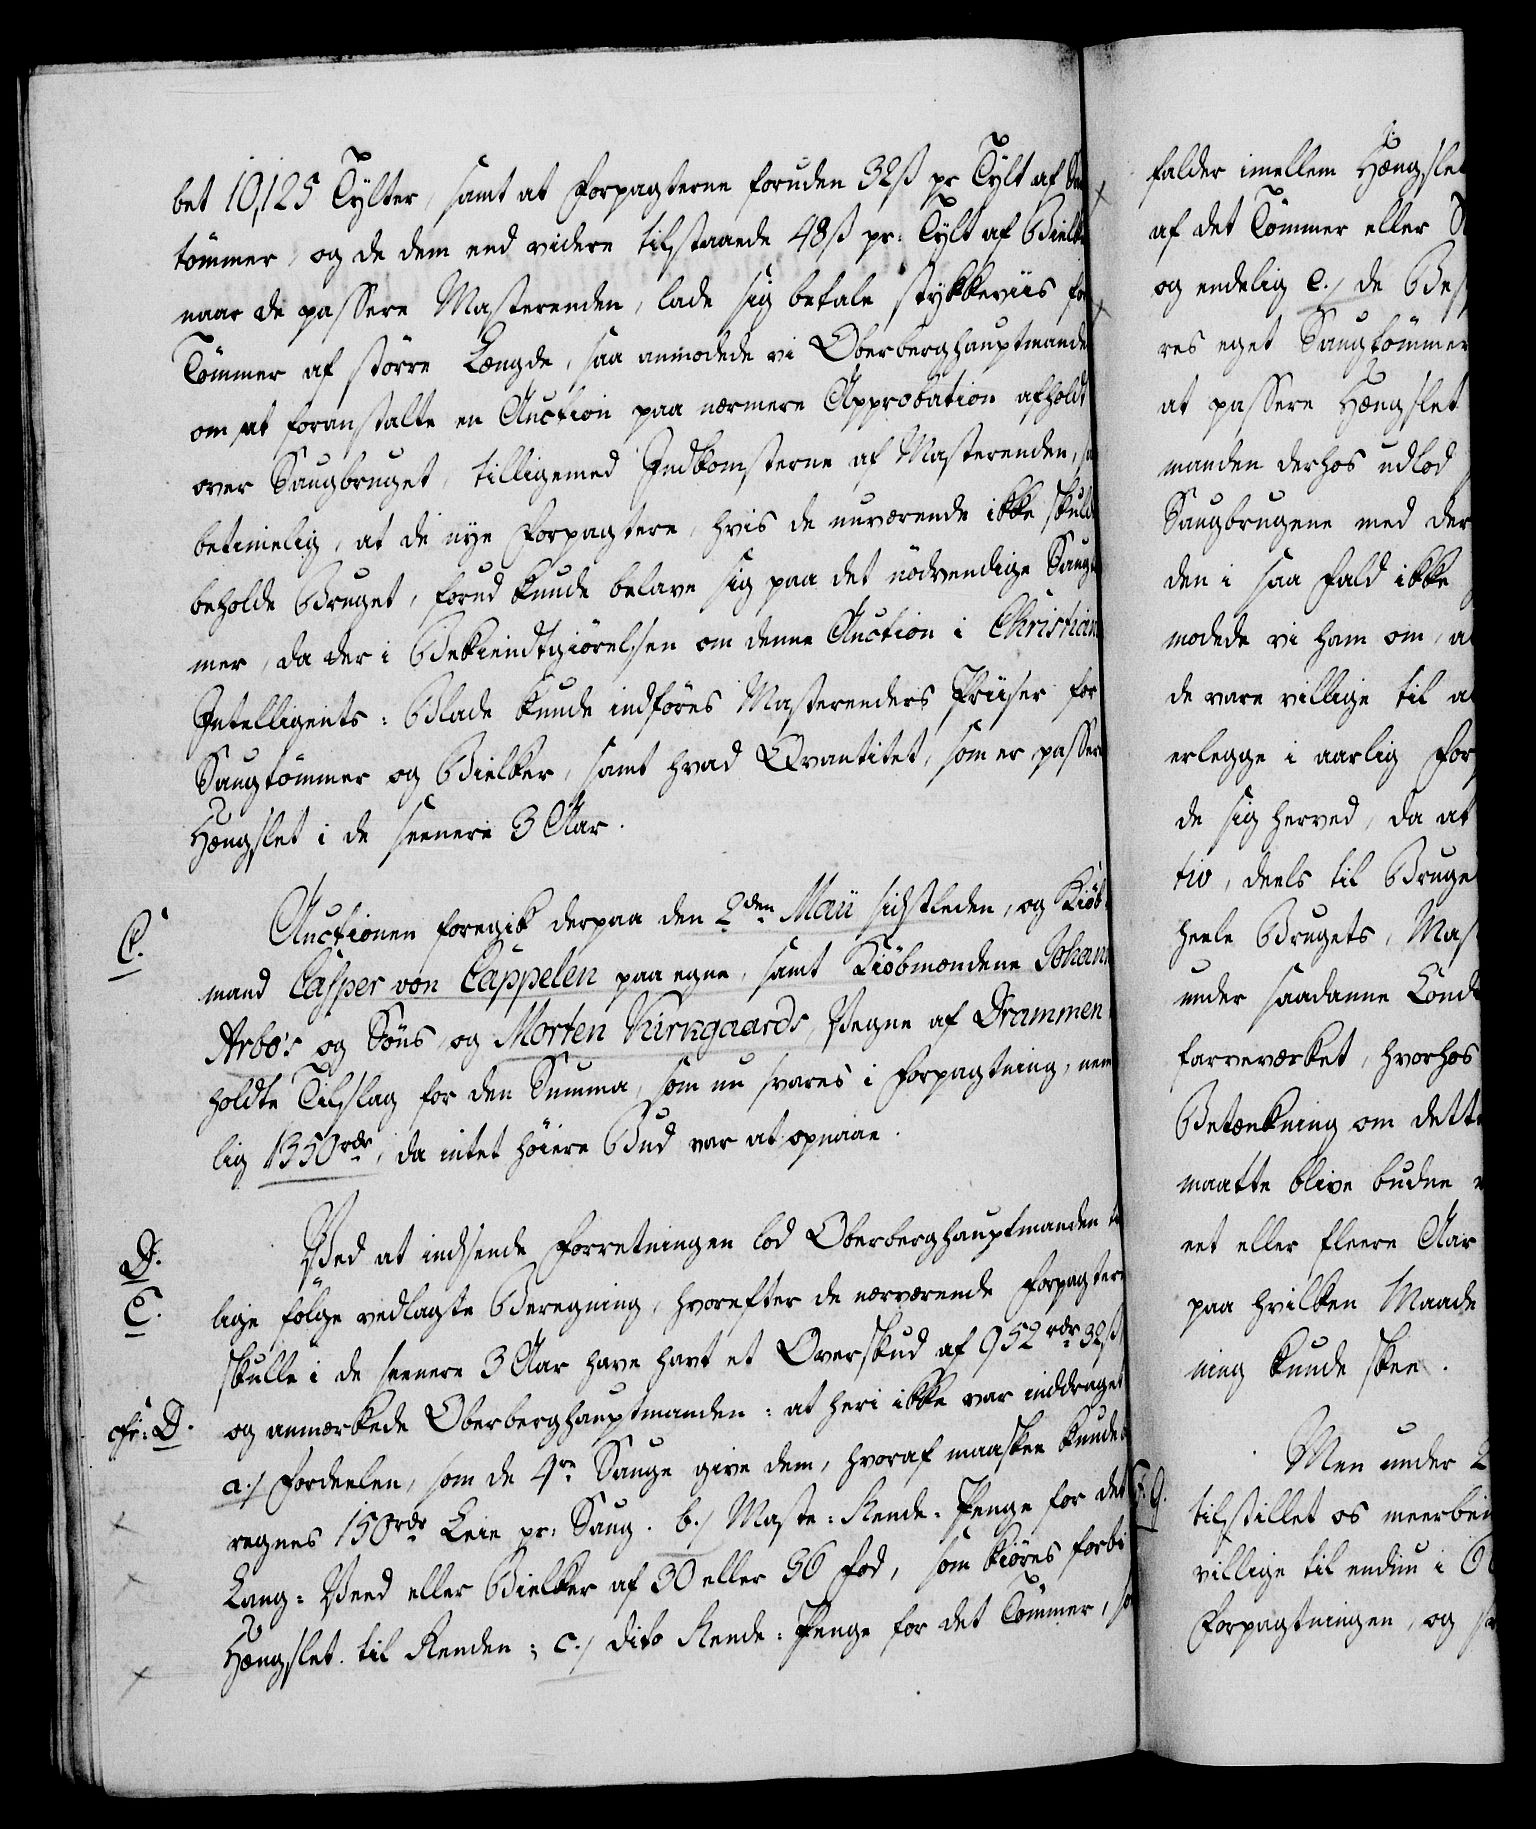 bet 10,125 Tylter, samt at Forpagterne foruden 32ß pr Tylt af
tömmer, og de dem end videre tilstaaede 48ß pr: Tylt af Bielke
naar de passere Masterenden, lade sig betale stykkeviis for
Tömmer af större Længde, saa anmodede vi Oberberghauptmanden
om at foranstalte en Auction paa nærmere Approbation afholdt
over Saugbruget, tilligemed Indkomsterne af Masterenden,
betimelig, at de nye Forpagtere, hvis de nuværende ikke skulde
beholde Bruget, forud kunde belave sig paa det nödvendige Saugt
mer, da der i Bekiendtgiörelsen om denne Auction i Christian
Intelligents: Blade kunde indföres Masterendens Priiser for
Saugtömmer og Bielker, samt hvad Qvantitet, som er passere
Hængslet i de seenere 3 Aar.
C.
Auctionen foregik derpaa den 2den Maii sidstleden, og Kiöb
mand Casper von Cappelen paa egne, samt Kiöbmændene Johan
Arbo's og Söns og Morten Kirkgaards, Vegne af Drammen
holdte Tilslag for den Summa, som nu svares i Forpagtning, nem
lig 1350rdr, da intet höiere Bud var at opnaae.
D.
Ved at indsende Forretningen lod Oberberghauptmanden
E.
lige fölge vedlagte Beregning, hvorefter de nærværende Forpagtere
skulle i de seenere 3 Aar have havt et Overskud af 952 rdr 32ß
cfr: D.
og anmærkede Oberberghauptmanden: at heri ikke var inddraget
a./ Fordeelen, som de 4re Sauge give dem, hvoraf maaskee kunde
regnes 150rdr Leie pr: Saug. b./ Maste: Rende: Penge for det
Lang: Veed eller Bielker af 30 eller 36 Fod, som kiöres forbi
Hængslet til Renden; c./ dito Rende: Penge for det Tömmer, so
falder imellem Hængslet
af det Tömmer eller
og endelig e./ de
res eget Saugtömmer
at passere Hængslet
manden derhos udlod
Saugbrugene med der
den i saa Fald ikke
modede vi ham om, a
de vare villige til a
erlegge i aarlig For
de sig herved, da at
tiv, deels til Bruge
heele Brugets, Mas
under saadanne Condi
farveværket, hvorhos
Betænkning om dette
maatte blive budne
eet eller fleere Aar
paa hvilken Maade
ning kunde skee.
Men under 2
tilstillet os meerben
villige til endnu i
Forpagtningen, og